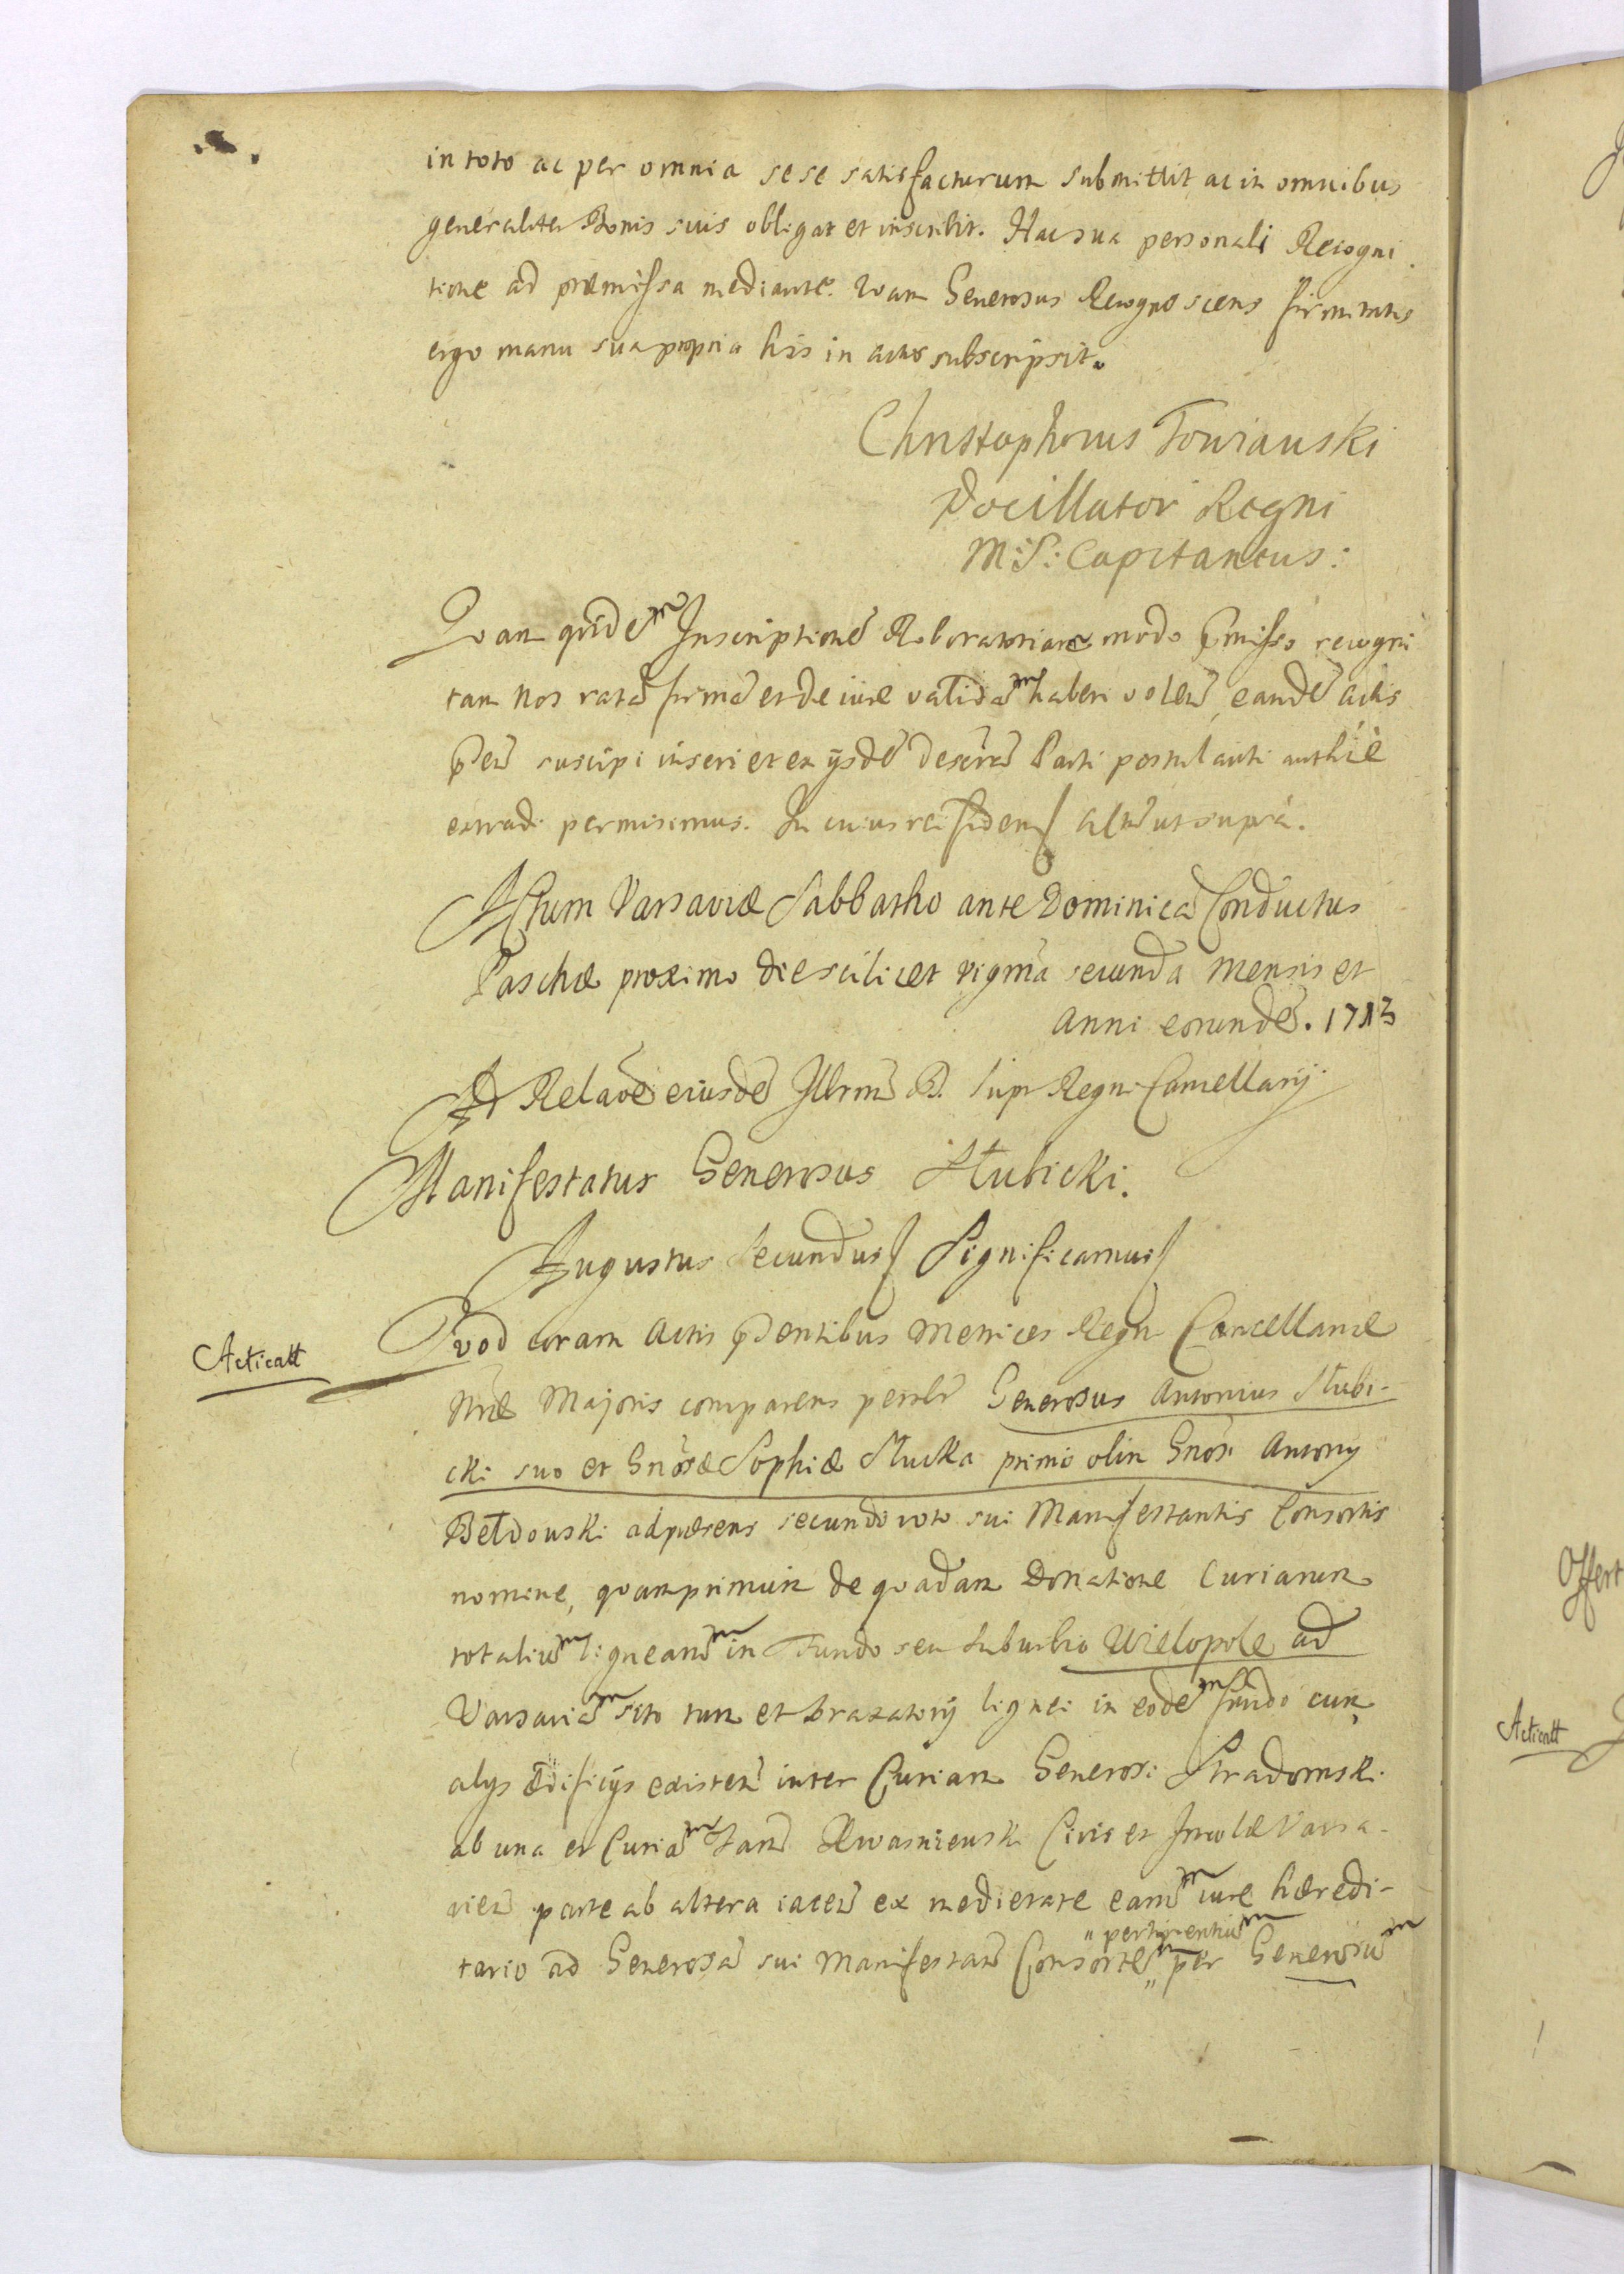 in toto ac per omnia sese satisfacturum submittit ac in omnibus
generaliter Bonis suis obligat et inscribit. Hac sua personali Recogni
tione ad præmissa mediante. Quam Generosus Recognoscens firmitatis
ergo manu sua propria his in actis subscripsit.
Christophorus Towianski
Pocillator Regni
M: S: Capitaneus:
Quam quidem Inscriptionẽ Roboratoriam modo pmisso recogni
tam Nos ratã firmã et de iure validam haberi volen, eandẽ actis
pñ suscipi inseri et ex ijsdẽ descrã Parti postulanti authẽ
extradi permisimus. In cuius rei fidem Actũ ut supra.
Actum Varsaviæ Sabbatho ante Dominicã Conductus
Paschæ proximo die scilicet vigma secunda Mensis et
Anni eorundẽ. 1713
Ad Relaõẽ eiusdẽ Illrm D. Supr Regni Cancellarij.
Manifestatur Generosus Słubicki.
Augustus Secundus Significamus
Acticatt
Quod coram Actis pdentibus Metrices Regn Cancellariæ
Nræ Majoris comparens persłr Generosus Antonius Słubi-
cki suo et Gnosæ Sophiæ Słucka primo olim Gnosi Antonij
Bełdowski ad præsens secundi voto sui Manifestantis Consortis
nomine, quamprimum de quadam Donatione Curiarum
totalium lignearum in Fundo seu suburbio Wielopole ad
Varsaviam sito tum et braxatorij lignei in eodem fundo cum
alijs ædificijs existen inter Curiam Generosi Stradomski
ab una et Curiam Fam Kwasniewski Civis et Incolæ Varsa-
vien parte ab altera iacen ex medietate earum iure hæredi-
tario ad Generosã sui Manifestan Consortem "pertinentium" per Generosum
Offert
Acticatt